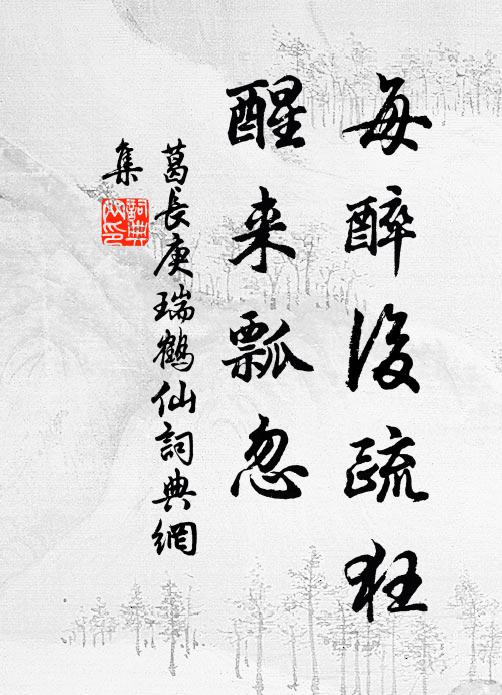 每醉後疏狂
醒来瓢忽
葛長庚瑞鶴仙詞典網
集
詞典網印